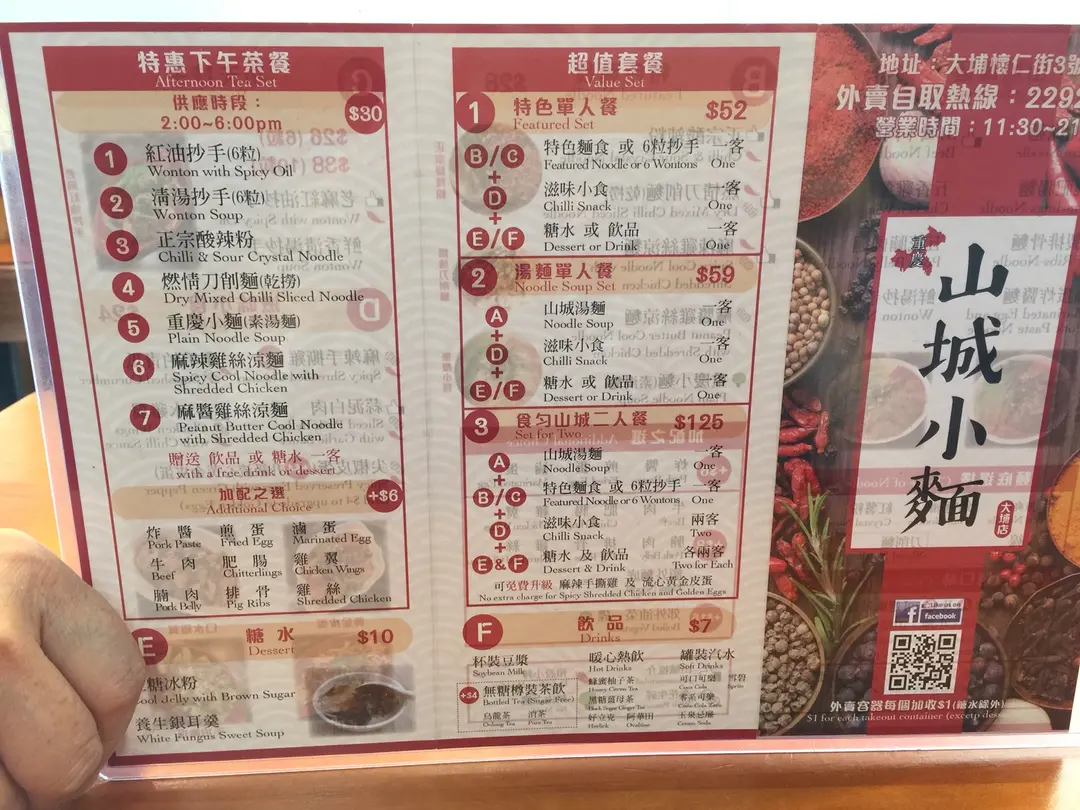 特惠下午茶餐
Afternoon Tea Set
供應時段：
2:00~6:00pm
$30
1 紅油抄手(6粒)
Wonton with Spicy Oil
2 清湯抄手(6粒)
Wonton Soup
3 正宗酸辣粉
Chilli & Sour Crystal Noodle
4 燃情刀削麵(乾撈)
Dry Mixed Chilli Sliced Noodle
5 重慶小麵(素湯麵)
Plain Noodle Soup
6 麻辣雞絲涼麵
Spicy Cool Noodle with
Shredded Chicken
7 麻醬雞絲涼麵
Peanut Butter Cool Noodle
with Shredded Chicken
贈送 飲品 或 糖水 一客
with a free drink or dessert
加配之選 +$6
Additional Choice
炸醬 煎蛋 滷蛋
Pork Paste Fried Egg Marinated Egg
牛肉 肥腸 雞翼
Beef Chitterlings Chicken Wings
腩肉 排骨 雞絲
Pork Belly Pig Ribs Shredded Chicken
E 糖水 $10
Dessert
糖冰粉
ool Jelly with Brown Sugar
養生銀耳羹
White Fungus Sweet Soup
超值套餐
Value Set
1 特色單人餐 $52
Featured Set
B/C 特色麵食 或 6粒抄手 一客
Featured Noodle or 6 Wontons One
+
D 滋味小食 一客
Chilli Snack One
+
E/F 糖水 或 飲品 一客
Dessert or Drink One
2 湯麵單人餐 $59
Noodle Soup Set
A 山城湯麵 一客
Noodle Soup One
+
D 滋味小食 一客
Chilli Snack One
+
E/F 糖水 或 飲品 一客
Dessert or Drink One
3 食勻山城二人餐 $125
Set for Two
A 山城湯麵 一客
Noodle Soup One
+
B/C 特色麵食 或 6粒抄手 一客
Featured Noodles or 6 Wontons One
+
D 滋味小食 兩客
Chilli Snack Two
+
E&F 糖水 及 飲品 各兩客
Dessert & Drink Two for Each
可免費升級 麻辣手撕雞 及 流心黃金皮蛋
No extra charge for Spicy Shredded Chicken and Golden Eggs
F 飲品 $7
Drinks
杯裝豆漿 暖心熱飲 罐裝汽水
Soybean Milk Hot Drinks Soft Drinks
+$4 無糖樽裝茶飲
Bottled Tea (Sugar Free)
烏龍茶
Oolong Tea
蜂蜜柚子茶
Honey Citron Tea
黑糖薑母茶
Black Sugar Ginger Tea
好立克 阿華田
Horlick Ovaltine
可口可樂 雪碧
Coca Cola Sprite
玉泉忌廉
Cream Soda
地址：大埔懷仁街3號
外賣自取熱線：2292
營業時間：11:30~21
重慶
山城小麵
大埔店
f Like us on
facebook
外賣容器每個加收$1(糖水除外)
$1 for each takeout container (excetp des